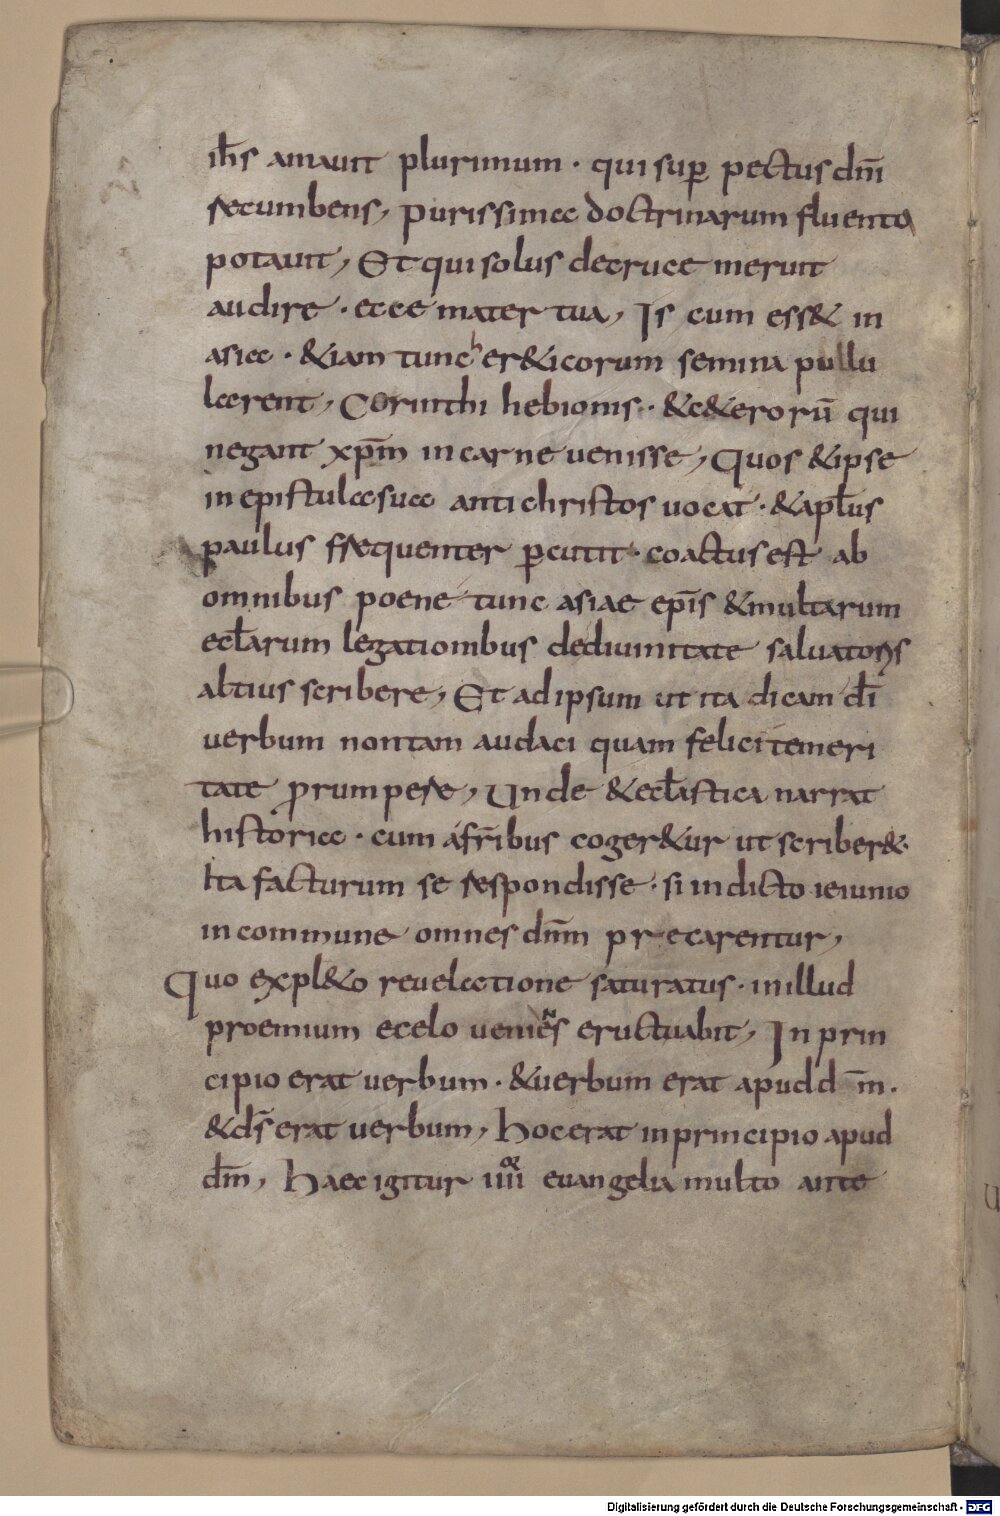 ih̅s amauit plurimum · qui sup̲ pectus dn̅i
recumbens, purissima doctrinarum fluenta
potauit, Et qui solus decruce meruit
audire · ecce mater tua, Is cum ess& in
asia · &iam tunc her&icorum semina pullu
larent, Corinthi hebionis · &c&erorū qui
negant xp̅m incarne uenisse, Quos &ipse
inepistulasua antichristos uocat · &apl̅us
paulus fsequenter p̲cutit · coactus est ab
omnibus poene tunc asiae ep̅is &multarum
ecl̅arum legationibus dediuinitate saluatoris
altius scribere, Et adipsum ut ita dicam dī
uerbum nontam audaci quam felici temeri
tate prumpere, Unde &ecl̅astica narrat
historia · cum afr̅ibus coger&ur ut scriber&·
Ita facturum se respondisse · si indicto ieiunio
incommune omnes dn̅m precarentur,
Quo expl&o reuelatione saturatus · inillud
proemium ecelo ueniens eructuabit, In prin
cipio erat uerbum · &uerbum erat apud d̅m ·
&ds̅ erat uerbum, hoc erat inprincipio apud
dm̅, Haec igitur iiii or euangelia multo ante
Digitalisierung gefördert durch die Deutsche Forschungsgemeinschaft - DFG